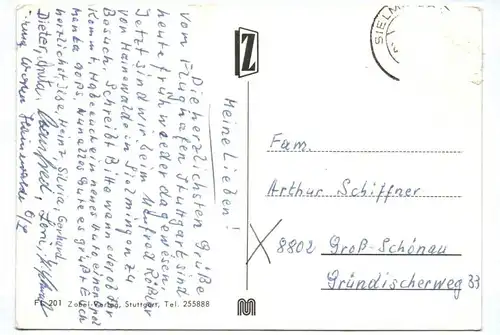 Meine Lieben!
Die herzlichsten Grüße
vom Flughafen Stuttgart sind
heute früh wieder dagewesen.
Jetzt sind wir beim Manfred Rößler
von Hainewalde in Sielmingen zu
Besuch. Schreibt Bitte wann oder ob der
kommt. Habe auch ein neues Auto einen
Manta
Nun alles Gute es grüßt Euch
herzlichst Ilse, Heinz, Silvia, Gerhard
Dieter, Anita, Manfred,
Z
SIELM
Fam.
Arthur Schiffner
8802 Groß-Schönau
Gründischerweg 33
201 Zobel-Verlag, Stuttgart, Tel. 255888